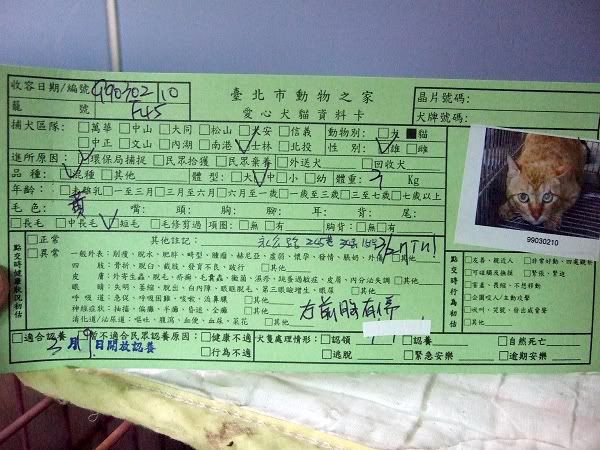 收容日期/編號 990302/10
臺北市動物之家
晶片號碼:
籠 號 F45
愛心犬貓資料卡
犬牌號碼:
捕犬區隊: □萬華 □中山 □大同 □松山 □大安 □信義 動物別: □犬 ■貓
□中正 □文山 □內湖 □南港 □士林 □北投 性別: □雄 □雌
進所原因: □環保局捕捉 □民眾拾獲 □民眾棄養 □外送犬 □回收犬
品種: □混種 □其他 體型: □大 □中 □小 □幼 體重: 3 Kg
年齡: □未離乳 □一至三月 □三至六月 □六月至一歲 □一歲至三歲 □三至七歲 □七歲以上
毛色: 黃 嘴: 頭: 胸: 腳: 耳: 背: 尾:
□長毛 □中長毛 □短毛 □毛修剪過 項圈: □無 □有 胸背: □無 □有
99030210
點交時健康狀況初估
□正常 其他註記:
□異常 一般外表: 削瘦、脫水、肥胖、畸型、腫瘤、赫尼亞、虛弱、懷孕、發情、賬奶、外傷 □其他
四 肢: 骨折、脫臼、截肢、發育不良、跛行 □其他
皮 膚: 外寄生蟲、脫毛、疥癬、毛囊蟲、黴菌、濕疹、跳蚤過敏症、皮屑、內分泌失調 □其他
眼 睛: 失明、萎縮、脫出、白內障、眼瞼脫毛、第三眼瞼增生、眼屎 □其他
呼吸道: 急促、呼吸困難、咳嗽、流鼻膿 □其他
神經症狀: 抽搐、偏癱、半癱、昏迷、全癱 □其他
消化道/泌尿道: 嘔吐、腹瀉、血便、血尿、菜花 □其他
右前腳有傷
點交時行為初估
□友善、親近人 □非常好動、四處觀望
□可碰觸及撫摸 □緊張、緊迫
□害羞、長縮、不想移動
□企圖咬人/主動攻擊
□吠叫、哭號、發出威脅聲
□其他
□適合認養 暫不適合民眾認養原因: □健康不適 犬隻處理情形: □認領 □自然死亡
三月9日開放認養 □行為不適 □逃脫 □緊急安樂 □逾期安樂